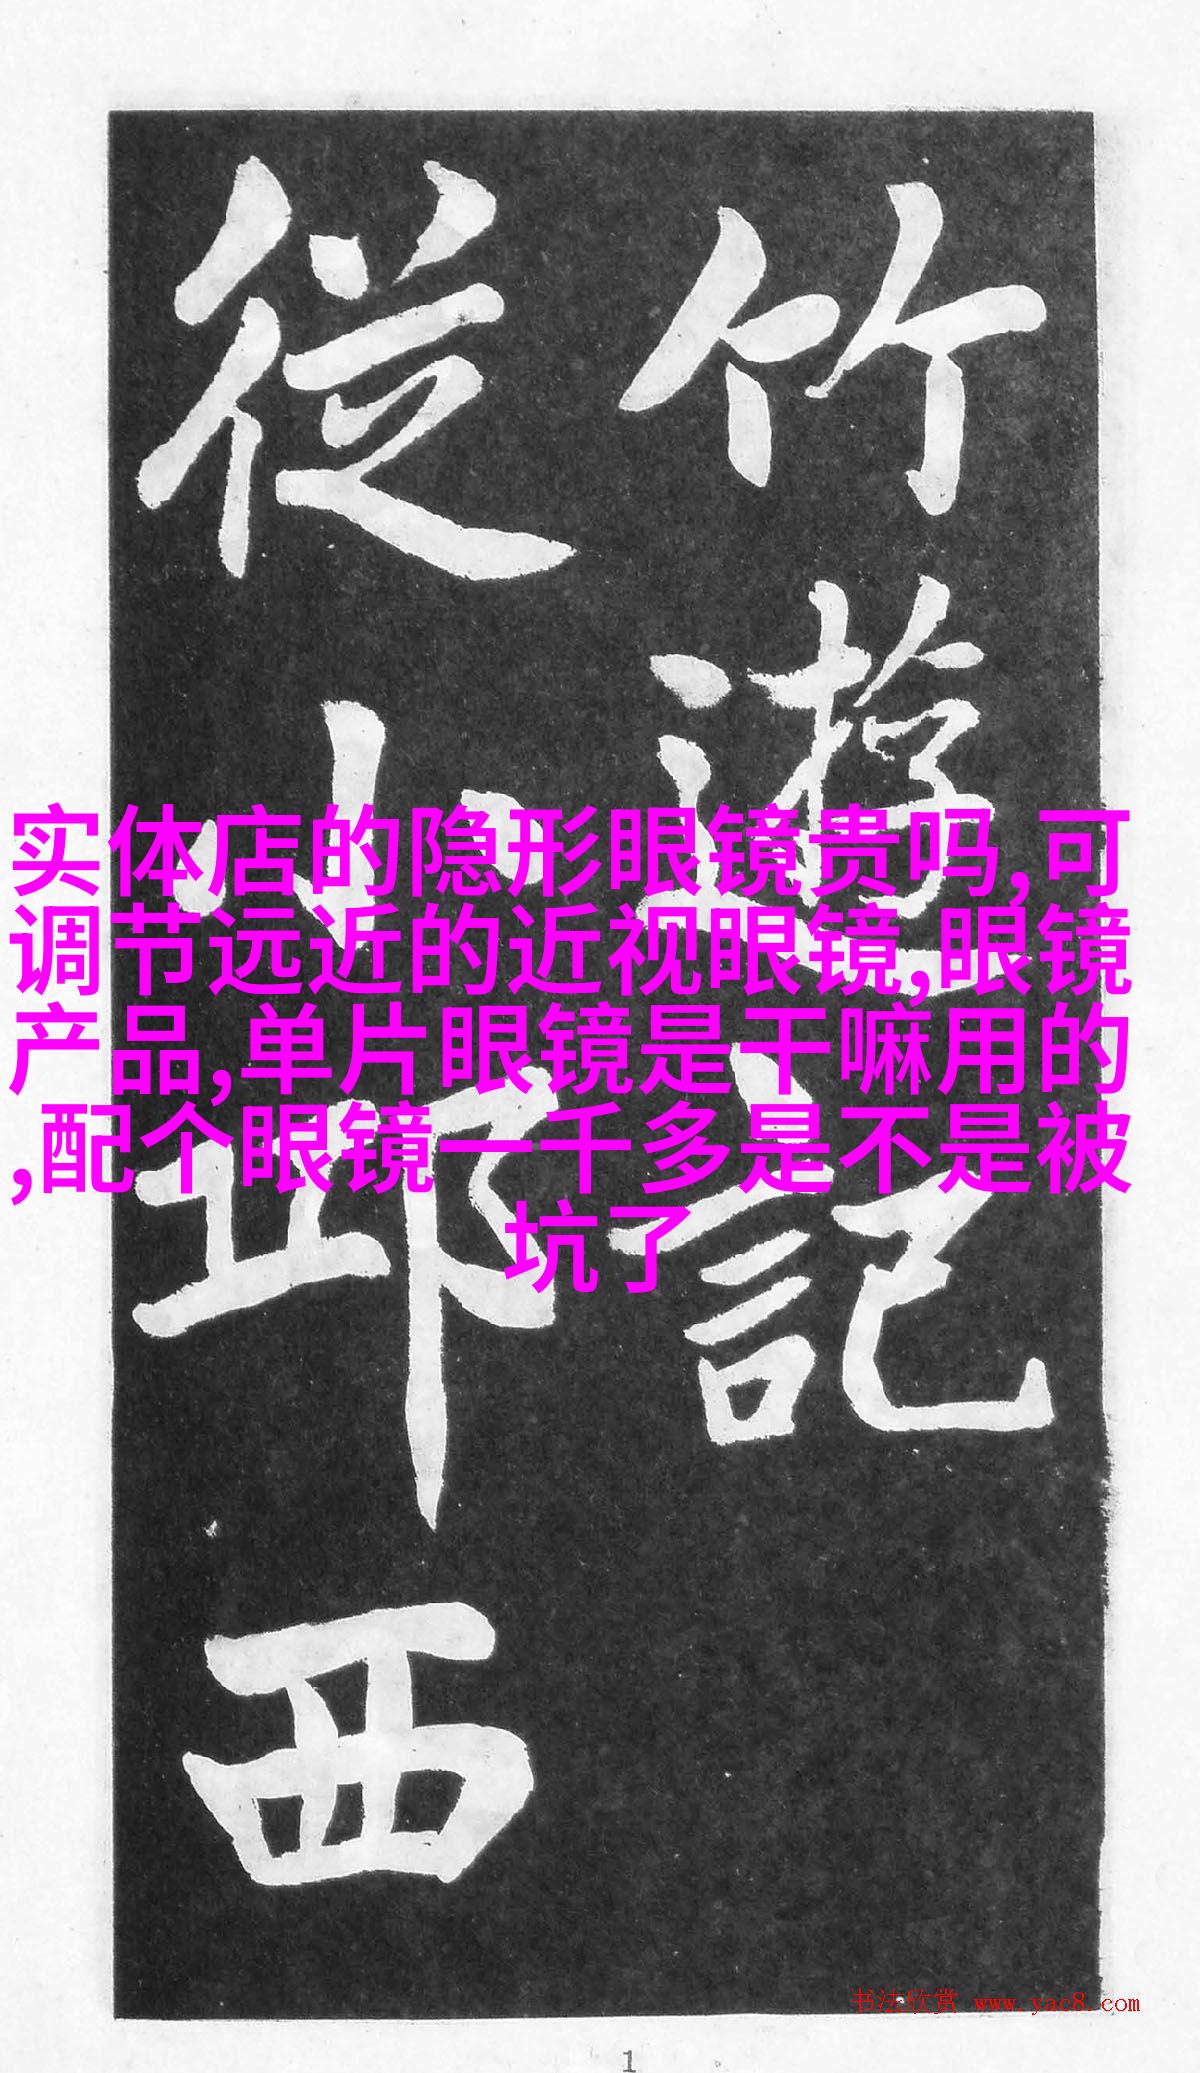 竹遊記
從小邱西
实体店的隐形眼镜贵吗,可
调节远近的近视眼镜,眼镜
产品,单片眼镜是干嘛用的
,配个眼镜一千多是不是被
坑了
书法欣赏 www.yac8.com
1